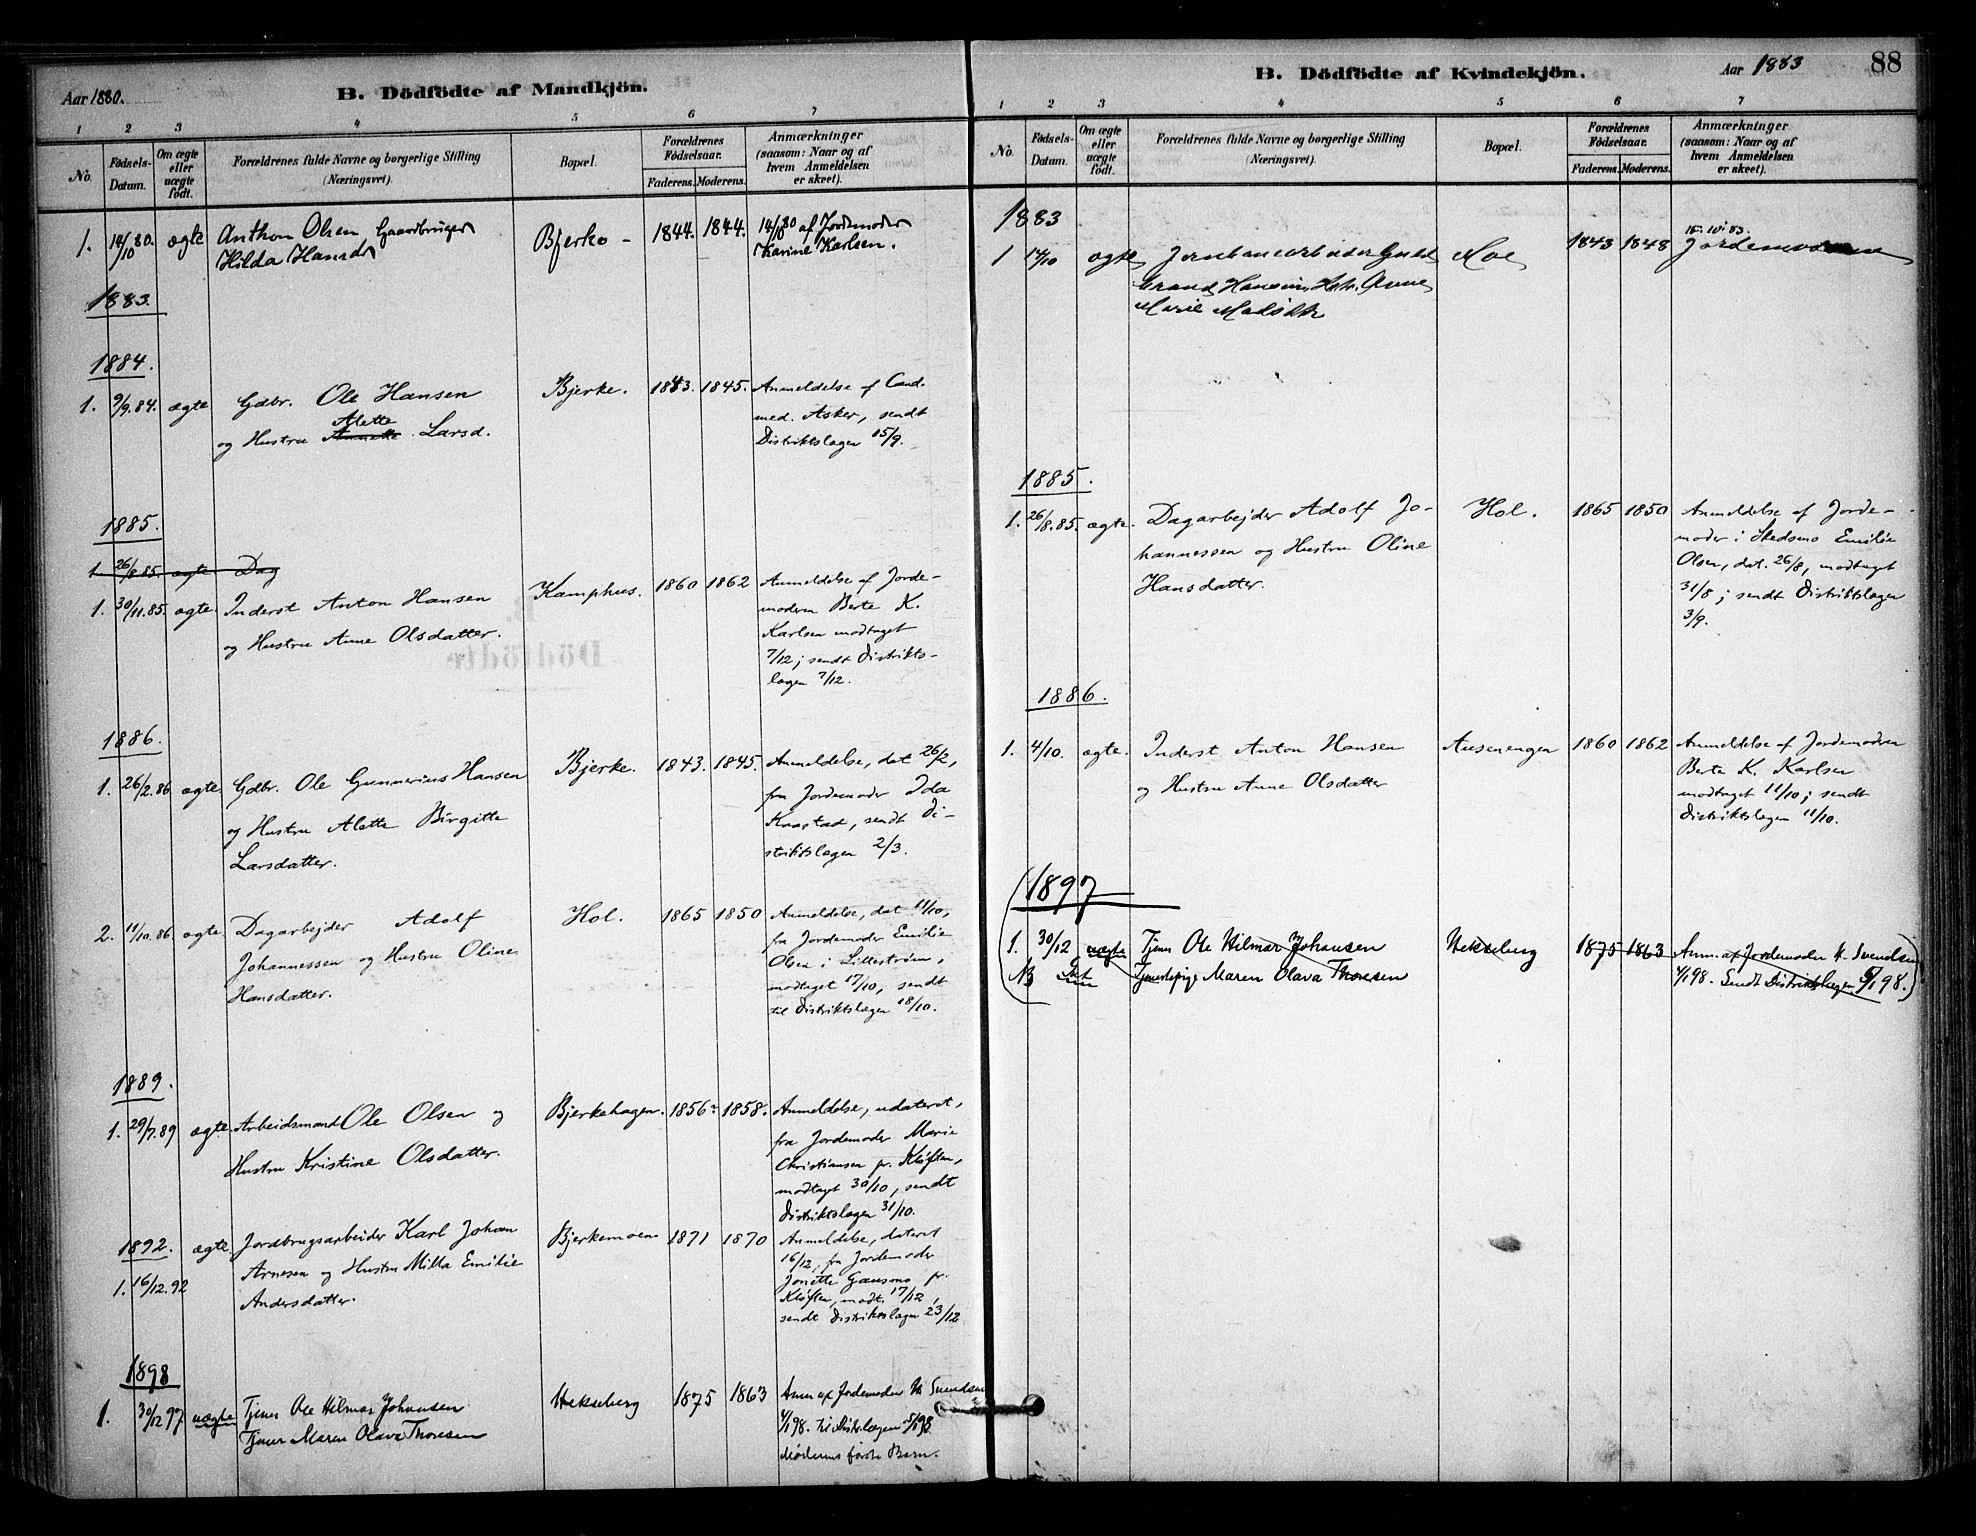 Aar 1880.
B. Dödfödte af Mandkjön.
1 2 3 4 5 6 7
No.
Födsels-
Datum.
Om ægte
eller
uægte
födt.
Forældrenes fulde Navne og borgerlige Stilling
(Næringsvei).
Bopæl.
Forældrenes
Födselsaar.
Faderens. Moderens.
Anmærkninger
(saasom: Naar og af
hvem Anmeldelsen
er skeet).
1. 14/10 80. ægte Anthon Olsen Gaardbruger Bjerke - 1844. 1844. 14/10 80 af Jordemoder
Hilda Hansdr Karine Karlsen.
1883.
1884.
1. 9/9.84. ægte Gdbr. Ole Hansen Bjerke. 1843. 1845. Anmeldelse af Cand.
Alette med. Asker, sendt
og Hustru Annette Larsd. Distriktslægen 15/9.
1885.
1. 26/8.85. ægte Dag
1. 30/11.85 ægte Inderst Anton Hansen Kamphus. 1860 1862 Anmeldelse af Jorde-
moderen Berte K.
og Hustru Anne Olsdatter. Karlsen modtaget
7/12; sendt Distrikts-
lægen 7/12.
1886.
1. 26/2.86 ægte Gdbr. Ole Gunnerius Hansen Bjerke. 1843. 1845. Anmeldelse, dat 26/2,
fra Jordemoder Ida
og Hustru Alette Birgitte Knastad, sendt Di-
Larsdatter. striktslægen 2/3.
2. 11/10.86 ægte Dagarbejder Adolf Hol. 1865 1850 Anmeldelse, dat 11/10,
fra Jordemoder Emilie
Johannessen og Hustru Oline Olsen i Lillestrøm,
modtaget 17/10, sendt
Hansdatter. til Distriktslægen 18/10.
1889.
1. 29/7.89 ægte Arbeidsmand Ole Olsen og Bjerkehagen. 1856 1858. Anmeldelse, udateret,
fra Jordemoder Marie
Hustru Kristine Olsdatter. Christiansen pr. Kløften,
modtaget 30/10, sendt
Distriktslægen 31/10.
1892. ægte Jordbrugsarbeider Karl Johan Bjerkemoen 1871 1870 Anmeldelse, dateret
16/12, fra Jordemoder
Arnesen og Hustru Milla Emilie
1. 16/12.92 Jonette Gausmo pr.
Andersdatter. Kløften, modt. 17/12,
sendt Distriktslægen 23/12
1898
1. 30/12 97 uægte Tjener Ole Hilmar Johansen Hekseberg 1875 1863 Anm af Jordemoder K Svendsen
Tjener Maren Olava Thoresen 4/1 98. Til Distrlægen 5/1 98
Moderens første Barn.
B. Dödfödte af Kvindekjön. Aar 1883 88
1 2 3 4 5 6 7
No.
Födsels-
Datum.
Om ægte
eller
uægte
födt.
Forældrenes fulde Navne og borgerlige Stilling
(Næringsvei).
Bopæl.
Forældrenes
Födselsaar.
Faderens. Moderens.
Anmærkninger
(saasom: Naar og af
hvem Anmeldelsen
er skeet).
1883
15.10.83.
1 14/10 ægte Jernbanearbeider Guld Moe 1843 1848 Jordemoderen
brand Hansen, Anne
Marie
1885.
1. 26/8.85. ægte. Dagarbejder Adolf Jo- Hol. 1865 1850 Anmeldelse af Jorde-
moder i Skedsmo Emilie
hannessen og Hustru Oline Olsen, dat. 26/8, modtagt
Hansdatter. 31/8; sendt Distriktslægen
3/9.
1886.
1. 4/10. ægte. Inderst Anton Hansen Auseneengen 1860 1862 Anmeldelse af Jordemoderen
Berte K. Karlsen
og Hustru Anne Olsdatter modtaget 11/10; sendt
Distriktslægen 11/10.
(1897
1. 30/12 uægte Tjener Ole Hilmar Johansen Hekseberg 1875 1863 Anm. af Jordemoder K. Svendsen
NB Tjenestepige Maren Olava Thoresen 4/1 98. Sendt Distriktslægen 5/1 98.)
Dödfödte